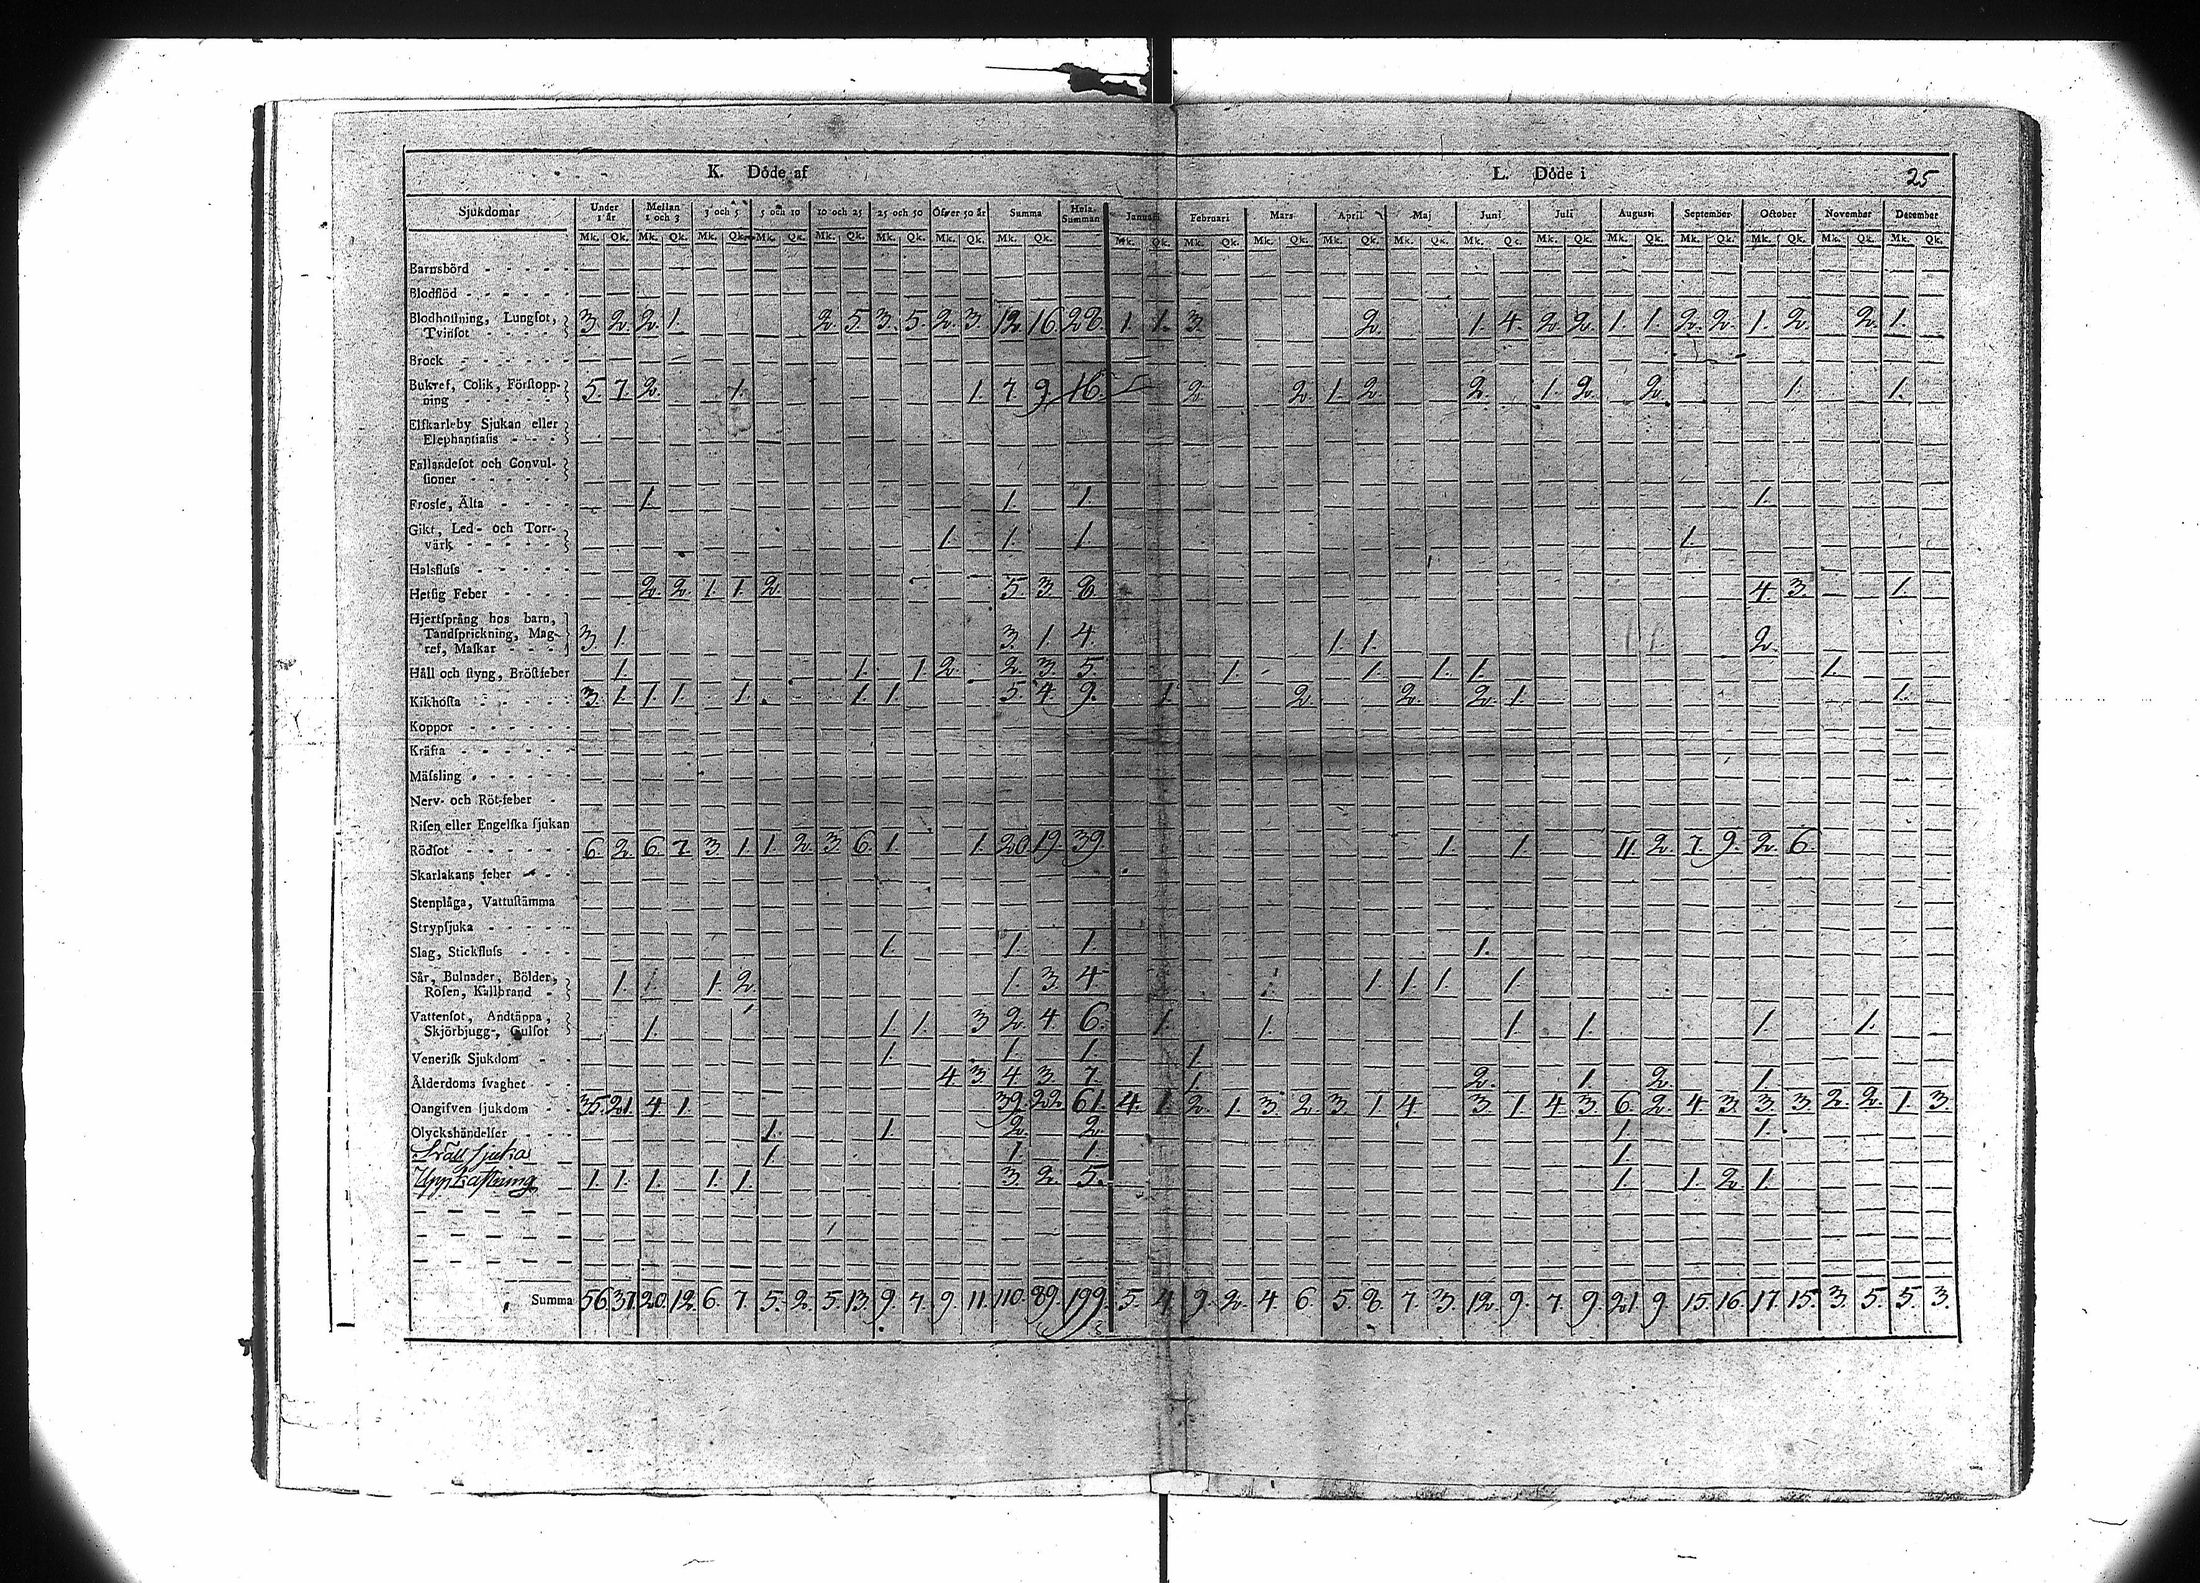 K. Döde af
L. Döde i 25
Sjukdomar Under 1 år Mellan 1 och 3 3 och 5 5 och 10 10 och 25 25 och 50 Öfver 50 år Summa Hela Summan Januarii Februari Mars April Maj Juni Juli Augusti September October November December
Mk. Qk. Mk. Qk. Mk. Qk. Mk. Qk. Mk. Qk. Mk. Qk. Mk. Qk. Mk. Qk. Mk. Qk. Mk. Qk. Mk. Qk. Mk. Qk. Mk. Qk. Mk. Qk. Mk. Qk. Mk. Qk. Mk. Qk. Mk. Qk. Mk. Qk. Mk. Qk.
Barnsbörd
Blodflöd
Blodhostning, Lungsot,
Tvinsot 3. 2. 2. 1. 2. 5. 3. 5. 2. 3. 12. 16. 28. 1. 1. 3. 2. 1. 4. 2. 2. 1. 1. 2. 2. 1. 2. 2. 1.
Brock
Bukref, Colik, Förstopp-
ning 5. 7. 2. 1. 1. 7. 9. 16. 2. 2. 1. 2. 2. 1. 2. 2. 1. 1.
Elfkarleby Sjukan eller
Elephantiasis
Fallandesot och Convul-
sioner
Frossa, Älta 1. 1. 1. 1.
Gikt, Led- och Torr-
värk 1. 1. 1. 1.
Halsfluss
Hetsig Feber 2. 2. 1. 1. 2. 5. 3. 8. 4. 3. 1.
Hjertsprång hos barn,
Tandsprickning, Mag-
ref, Maskar 3. 1. 3. 1. 4. 1. 1. 2.
Håll och styng, Bröstfeber 1. 1. 1. 2. 2. 3. 5. 1. 1. 1. 1. 1.
Kikhosta 3. 1. 1. 1. 1. 1. 1. 5. 4. 9. 1. 2. 2. 2. 1. 1.
Koppor
Kräfta
Mässling
Nerv- och Röt-feber
Risen eller Engelska sjukan
Rödsot 6. 2. 6. 7. 3. 1. 1. 2. 3. 6. 1. 1. 20. 19. 39. 1. 1. 11. 2. 7. 9. 2. 6.
Skarlakans feber
Stenplåga, Vattustämma
Strypsjuka
Slag, Stickfluss 1. 1. 1. 1.
Sår, Bulnader, Bölder,
Rosen, Kallbrand 1. 1. 2. 1. 3. 4. 1. 1. 1. 1.
Vattensot, Andtäppa,
Skjörbjugg-, Gulsot 1. 1. 1. 3 2. 4. 6. 1. 1. 1. 1. 1. 1.
Venerisk Sjukdom 1. 1. 1. 1.
Ålderdoms svaghet 4. 3. 4. 3. 7. 1. 2. 1. 2. 1.
Oangifven sjukdom 35. 21. 4. 1. 39. 22. 61. 4. 1. 2. 1. 3. 2. 3. 1. 4. 3. 1. 4. 3. 6. 2. 4. 3. 3. 3. 2. 2. 1. 3.
Olyckshändelser 1. 1. 2. 2. 1. 1.
sjuka 1. 1. 1. 1.
1. 1. 1. 1. 1. 3. 2. 5. 1. 1. 2. 1.
Summa 56. 37. 20. 12. 6. 7. 5. 2. 5. 13. 9. 7. 9. 11. 110. 89. 199. 5. 4. 9. 2. 4. 6. 5. 8. 7. 3. 12. 9. 7. 9. 21. 9. 15. 16. 17. 15. 3. 5. 5. 3.